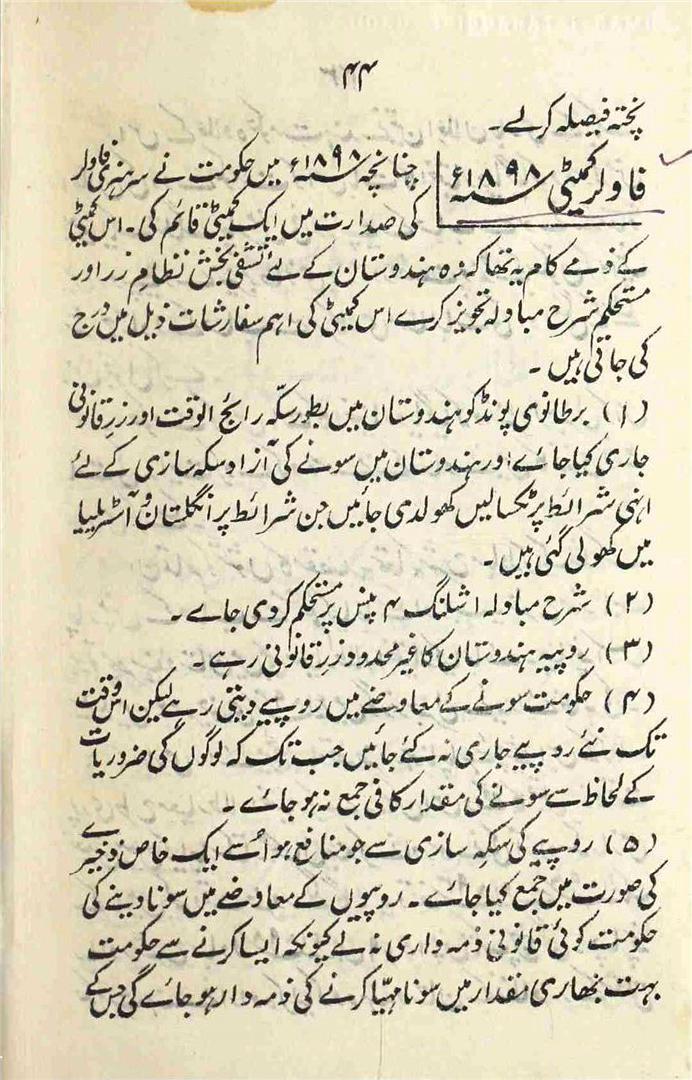 ۴۴
پختہ فیصلہ کرلے۔
فاولر کمیٹی ۱۸۹۸ء
چنانچہ ۱۸۹۸ء میں حکومت نے سر ہنری فاولر
کی صدارت میں ایک کمیٹی قائم کی۔ اس کمیٹی
کے ذمے کام یہ تھا کہ وہ ہندوستان کے لئے تشفی بخش نظامِ زر اور
مستحکم شرح مبادلہ تجویز کرے اس کمیٹی کی اہم سفارشات ذیل میں درج
کی جاتی ہیں۔
(۱) برطانوی پونڈ کو ہندوستان میں بطور سکّہ رائج الوقت اور زرِ قانونی
جاری کیا جائے اور ہندوستان میں سونے کی آزاد سکہ سازی کے لئے
انہی شرائط پر ٹکسالیں کھولدی جائیں جن شرائط پر انگلستان و آسٹریلیا
میں کھولی گئی ہیں۔
(۲) شرح مبادلہ اشلنگ ۴ پنس پر مستحکم کردی جاے۔
(۳) روپیہ ہندوستان کا غیر محدود زرِ قانونی رہے۔
(۴) حکومت سونے کے معاوضے میں روپیے دیتی رہے لیکن اس وقت
تک نئے روپیے جاری نہ کئے جائیں جب تک کہ لوگوں کی ضروریات
کے لحاظ سے سونے کی مقدار کافی جمع نہ ہو جاے۔
(۵) روپیے کی سکہ سازی سے جو منافع ہو اُسے ایک خاص ذخیرے
کی صورت میں جمع کیا جاے۔ روپیوں کے معاوضے میں سونا دینے کی
حکومت کوئی قانونی ذمہ داری نہ لے کیونکہ ایسا کرنے سے حکومت
بہت بھاری مقدار میں سونا مہیّا کرنے کی ذمہ دار ہو جاے گی جس کے